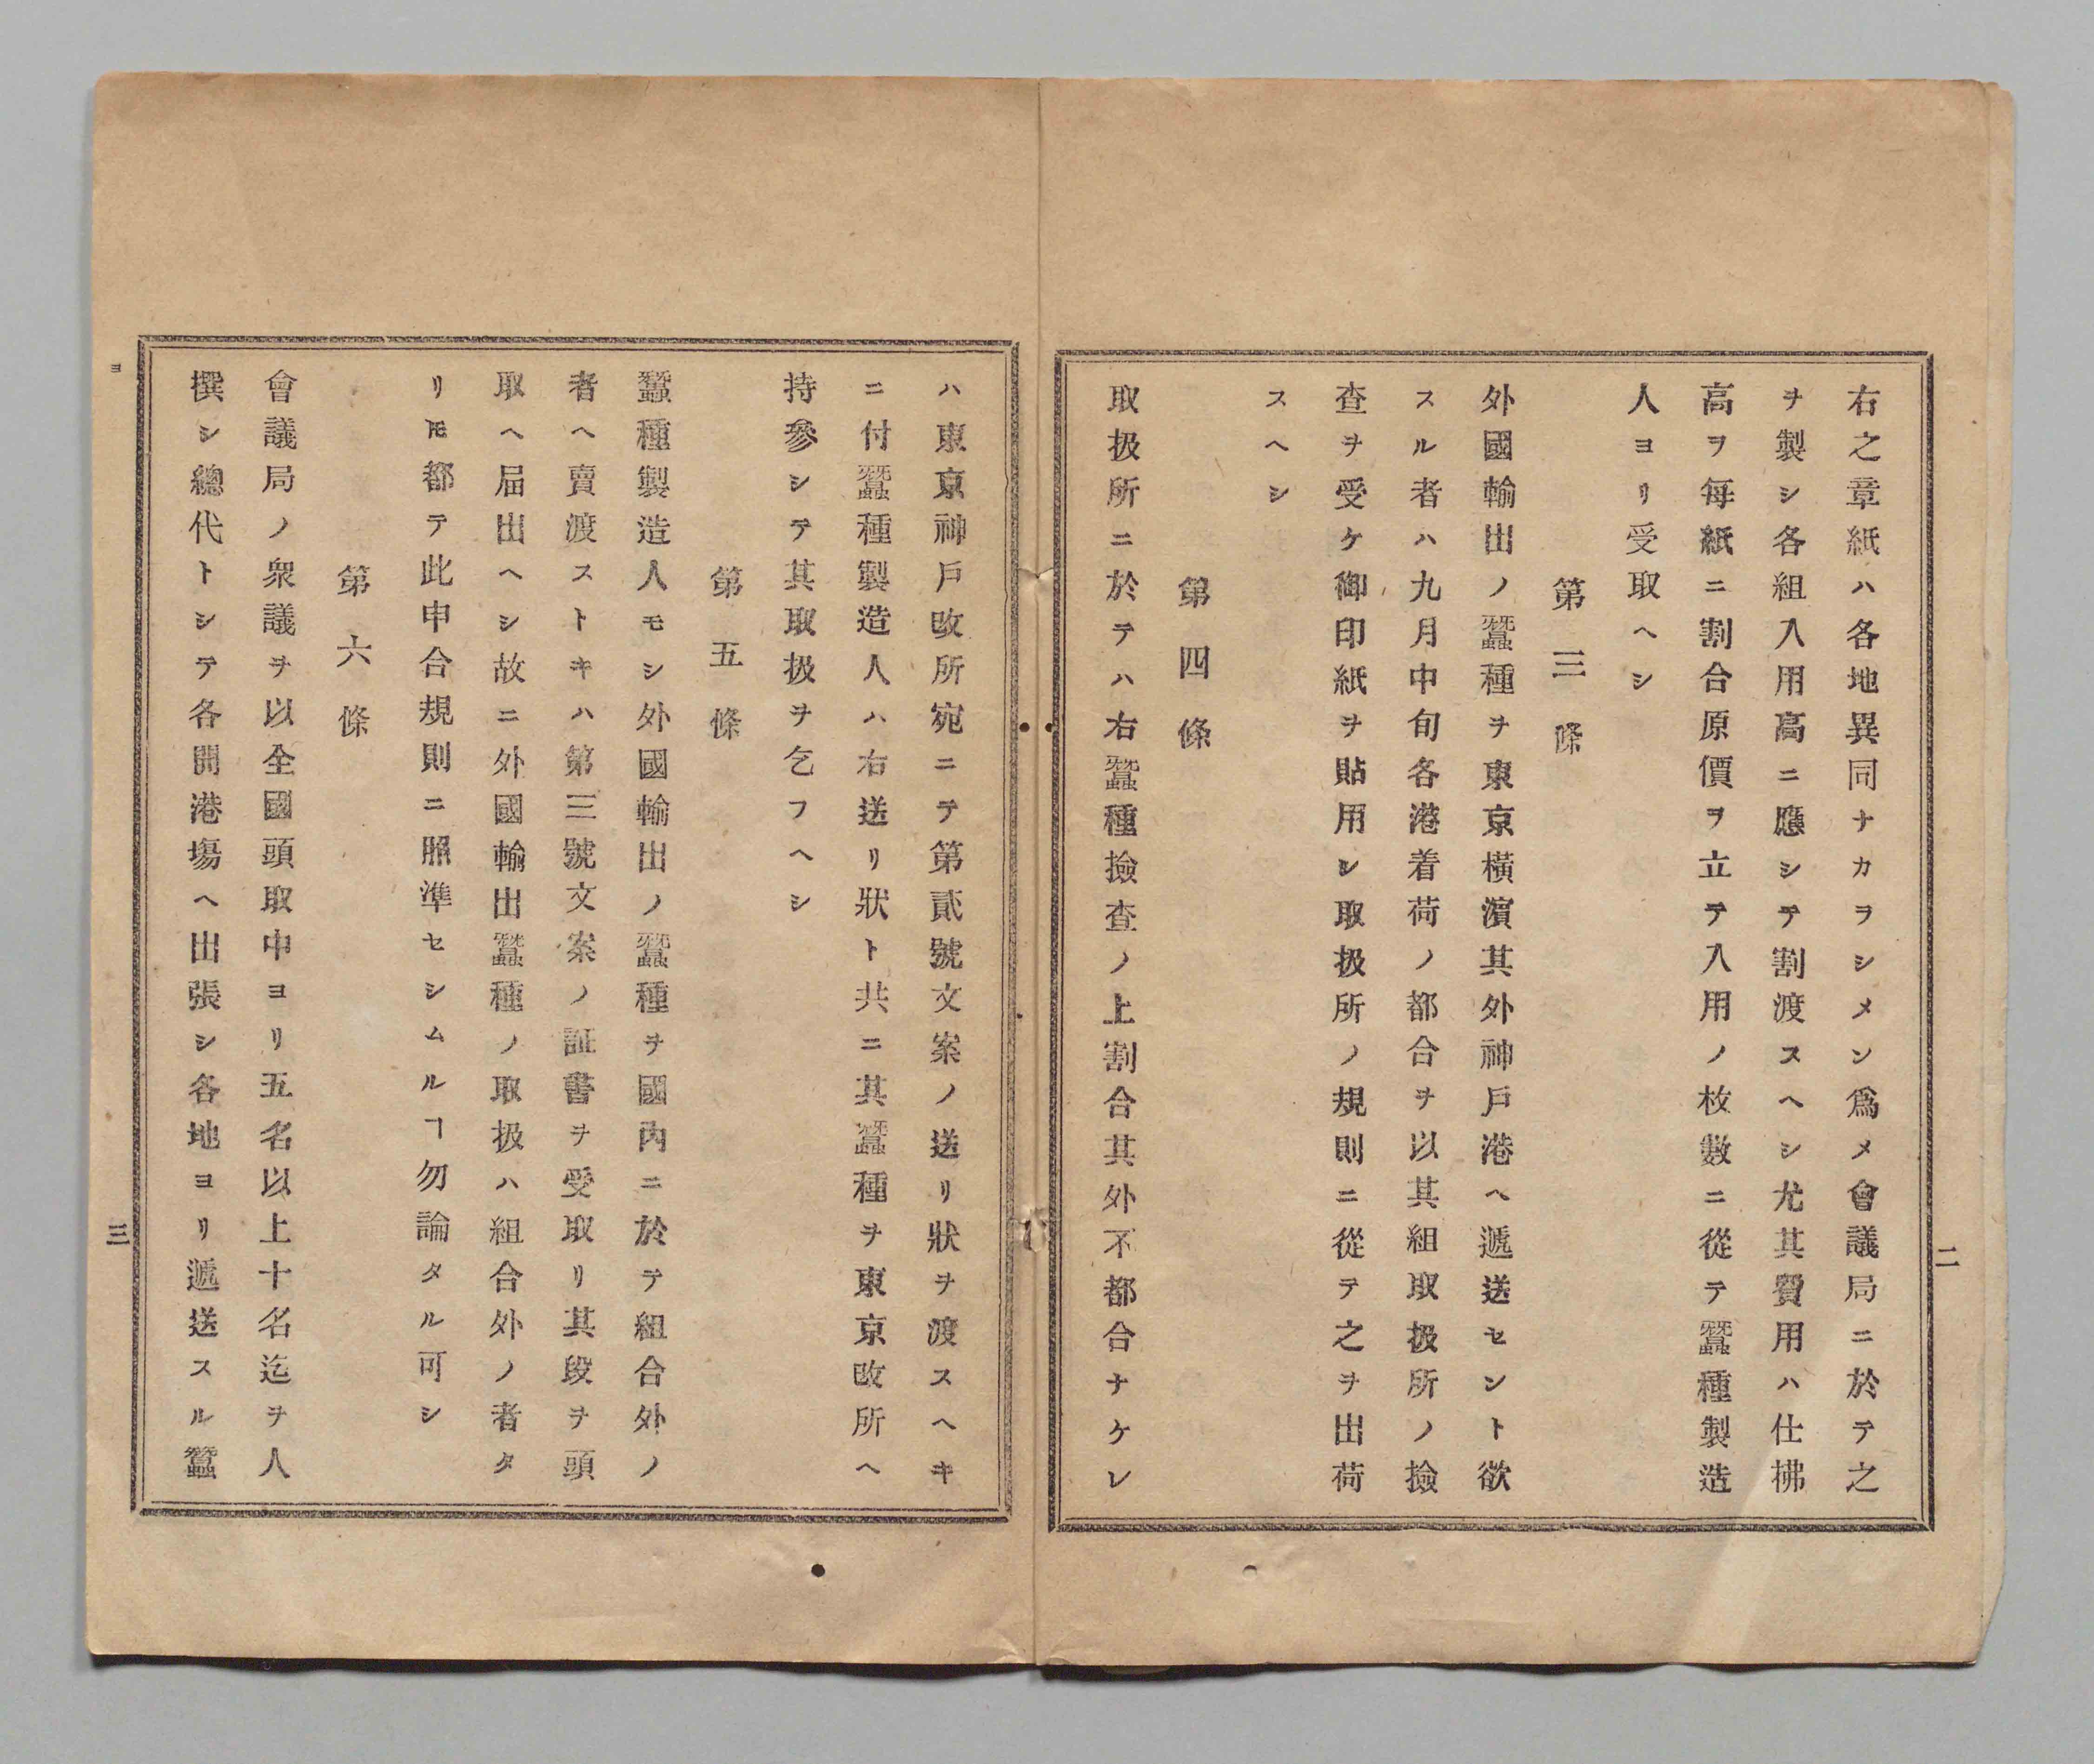 二
右之章紙ハ各地異同ナカラシメン爲メ會議局ニ於テ之
ヲ製シ各組入用高ニ應シテ割渡スヘシ尤其費用ハ仕拂
高ヲ毎紙ニ割合原價ヲ立テ入用ノ枚數ニ從テ蠶種製造
人ヨリ受取ヘシ
第三條
外國輸出ノ蠶種ヲ東京橫濱其外神戶港ヘ遞送セント欲
スル者ハ九月中旬各港着荷ノ都合ヲ以其組取扱所ノ撿
査ヲ受ケ御印紙ヲ貼用シ取扱所ノ規則ニ從テ之ヲ出荷
スヘシ
第四條
取扱所ニ於テハ右蠶種撿査ノ上割合其外不都合ナケレ
ハ東京神戶改所宛ニテ第貳號文案ノ送リ狀ヲ渡スヘキ
ニ付蠶種製造人ハ右送リ狀ト共ニ其蠶種ヲ東京改所ヘ
持參シテ其取扱ヲ乞フヘシ
第五條
蠶種製造人モシ外國輸出ノ蠶種ヲ國內ニ於テ組合外ノ
者ヘ賣渡ストキハ第三號文案ノ証書ヲ受取リ其段ヲ頭
取ヘ届出ヘシ故ニ外國輸出蠶種ノ取扱ハ組合外ノ者タ
リ𪜈都テ此申合規則ニ照準セシムルヿ勿論タル可シ
第六條
會議局ノ衆議ヲ以全國頭取中ヨリ五名以上十名迄ヲ人
撰シ總代トシテ各開港塲ヘ出張シ各地ヨリ遞送スル蠶
三
ヨ